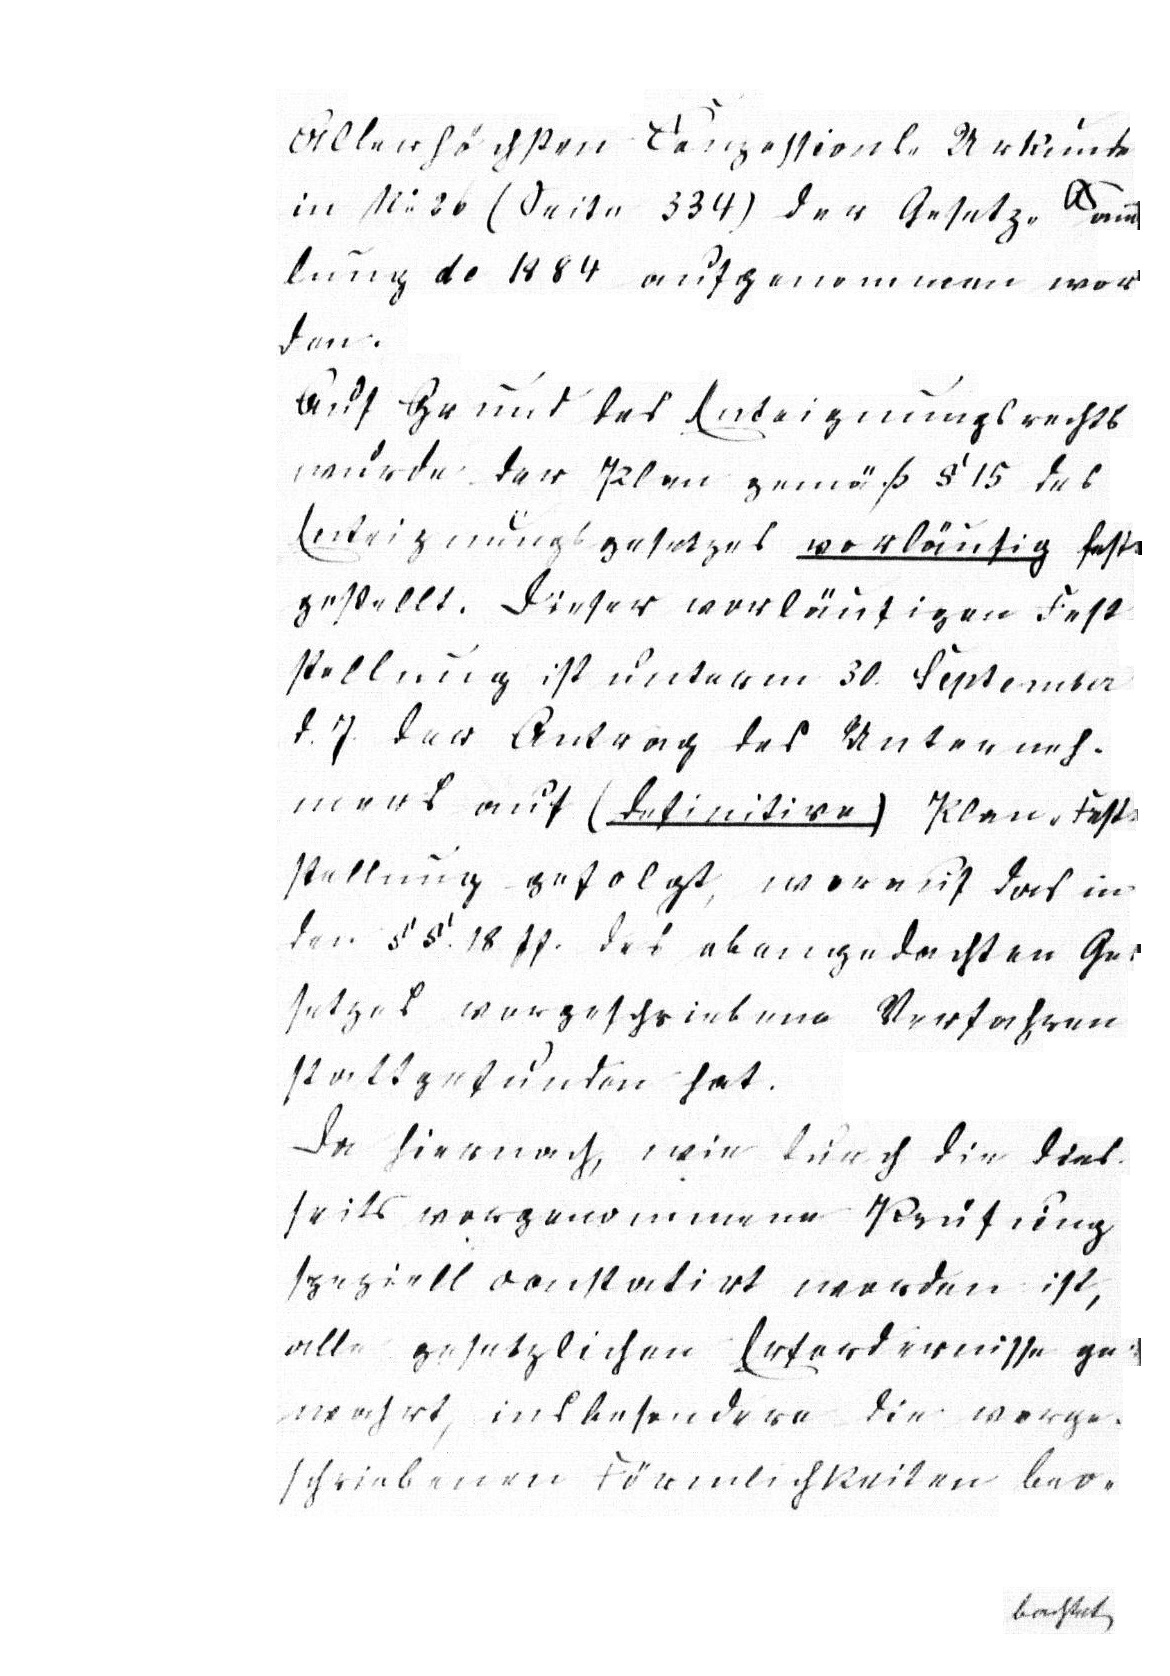 Allerhöchsten Conzessions-Urkunde
in No 26 (Seite 334) der Gesetz-Samm
lung de 1884 aufgenommen wor
den.
Auf Grund des Enteignungsrechts
wurde der Plan gemäß § 15 des
Enteignungsgesetzes vorläufig fest-
gestellt. Dieser vorläufigen Fest
stellung ist unterm 30. September
d. J. der Antrag des Unterneh-
mers auf (definitive) Plan-Fest-
stellung gefolgt, worauf das in
den §§. 18 ff. des ebengedachten Ge-
setzes vorgeschriebene Verfahren
stattgefunden hat.
Da hiernach, wie durch die dies-
seits vorgenommene Prüfung
speziell constatirt worden ist,
alle gesetzlichen Erfordernisse ge-
wahrt, insbesondere die vorge-
schriebenen Förmlichkeiten beo-
bachtet